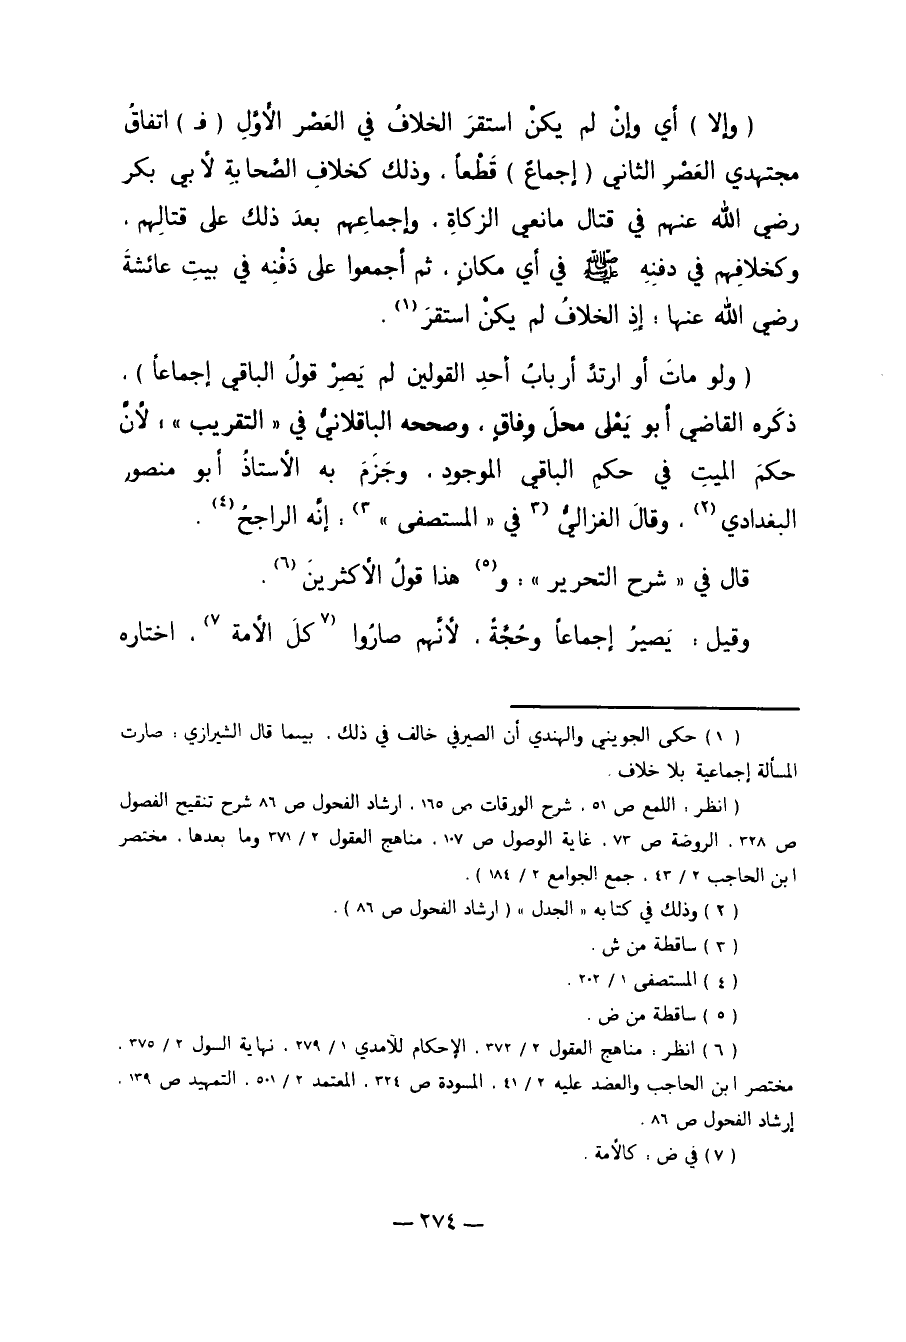 ( وإلا ) أي وإنْ لم يكنْ استقرَ الخلافُ في العَصْر الأوَّلِ ( فـ ) اتفاقُ
مجتهدي العَصْرِ الثاني ( إجماعٌ ) قَطْعاً ، وذلك كخلافِ الصَّحابةِ لأبي بكر
رضي الله عنهم في قتال مانعي الزكاةِ ، وإجماعِهم بعدَ ذلك على قتالِهم ،
وكخلافِهم في دفنِهِ ﷺ في أي مكانٍ ، ثم أجمعوا على دَفْنِه في بيتِ عائشةَ
رضي الله عنها ؛ إذِ الخلافُ لم يكنْ استقرَ (١) .
( ولو ماتَ أو ارتدَّ أربابُ أحدِ القولين لم يَصِرْ قولُ الباقي إجماعاً ) ،
ذكَره القاضي أبو يَعْلى محلَ وِفاقٍ ، وصححه الباقلانيُّ في « التقريب » ؛ لأنَّ
حكمَ الميتِ في حكمِ الباقي الموجودِ ، وجَزَمَ به الأستاذُ أبو منصور
البغدادي (٢) ، وقالَ الغزاليُّ (٣ في « المستصفى » ٣) : إنَّه الراجحُ (٤) .
قال في « شرح التحرير » : و (٥) هذا قولُ الأكثرينَ (٦) .
وقيل : يَصيرُ إجماعاً وحُجَّةً ، لأنَّهم صارُوا (٧ كلَ الأمة ٧) ، اختاره
( ١ ) حكى الجويني والهندي أن الصيرفي خالف في ذلك . بيسما قال الشيرازي : صارت
المسألة إجماعية بلا خلاف .
( انظر : اللمع ص ٥١ ، شرح الورقات ص ١٦٥ ، ارشاد الفحول ص ٨٦ شرح تنقيح الفصول
ص ٣٢٨ ، الروضة ص ٧٣ ، غاية الوصول ص ١٠٧ ، مناهج العقول ٢ / ٣٧١ وما بعدها ، مختصر
ابن الحاجب ٢ / ٤٣ ، جمع الجوامع ٢ / ١٨٤ ) .
( ٢ ) وذلك في كتابه « الجدل » ( ارشاد الفحول ص ٨٦ ) .
( ٣ ) ساقطة من ش .
( ٤ ) المستصفى ١ / ٢٠٢ .
( ٥ ) ساقطة من ض .
( ٦ ) انظر : مناهج العقول ٢ / ٣٧٢ ، الإحكام للآمدي ١ / ٢٧٩ ، نهاية السول ٢ / ٣٧٥ ،
مختصر ابن الحاجب والعضد عليه ٢ / ٤١ ، المسودة ص ٣٢٤ ، المعتمد ٢ / ٥٠١ ، التمهيد ص ١٣٩ ،
إرشاد الفحول ص ٨٦ .
( ٧ ) في ض : كالأمة .
— ٢٧٤ —